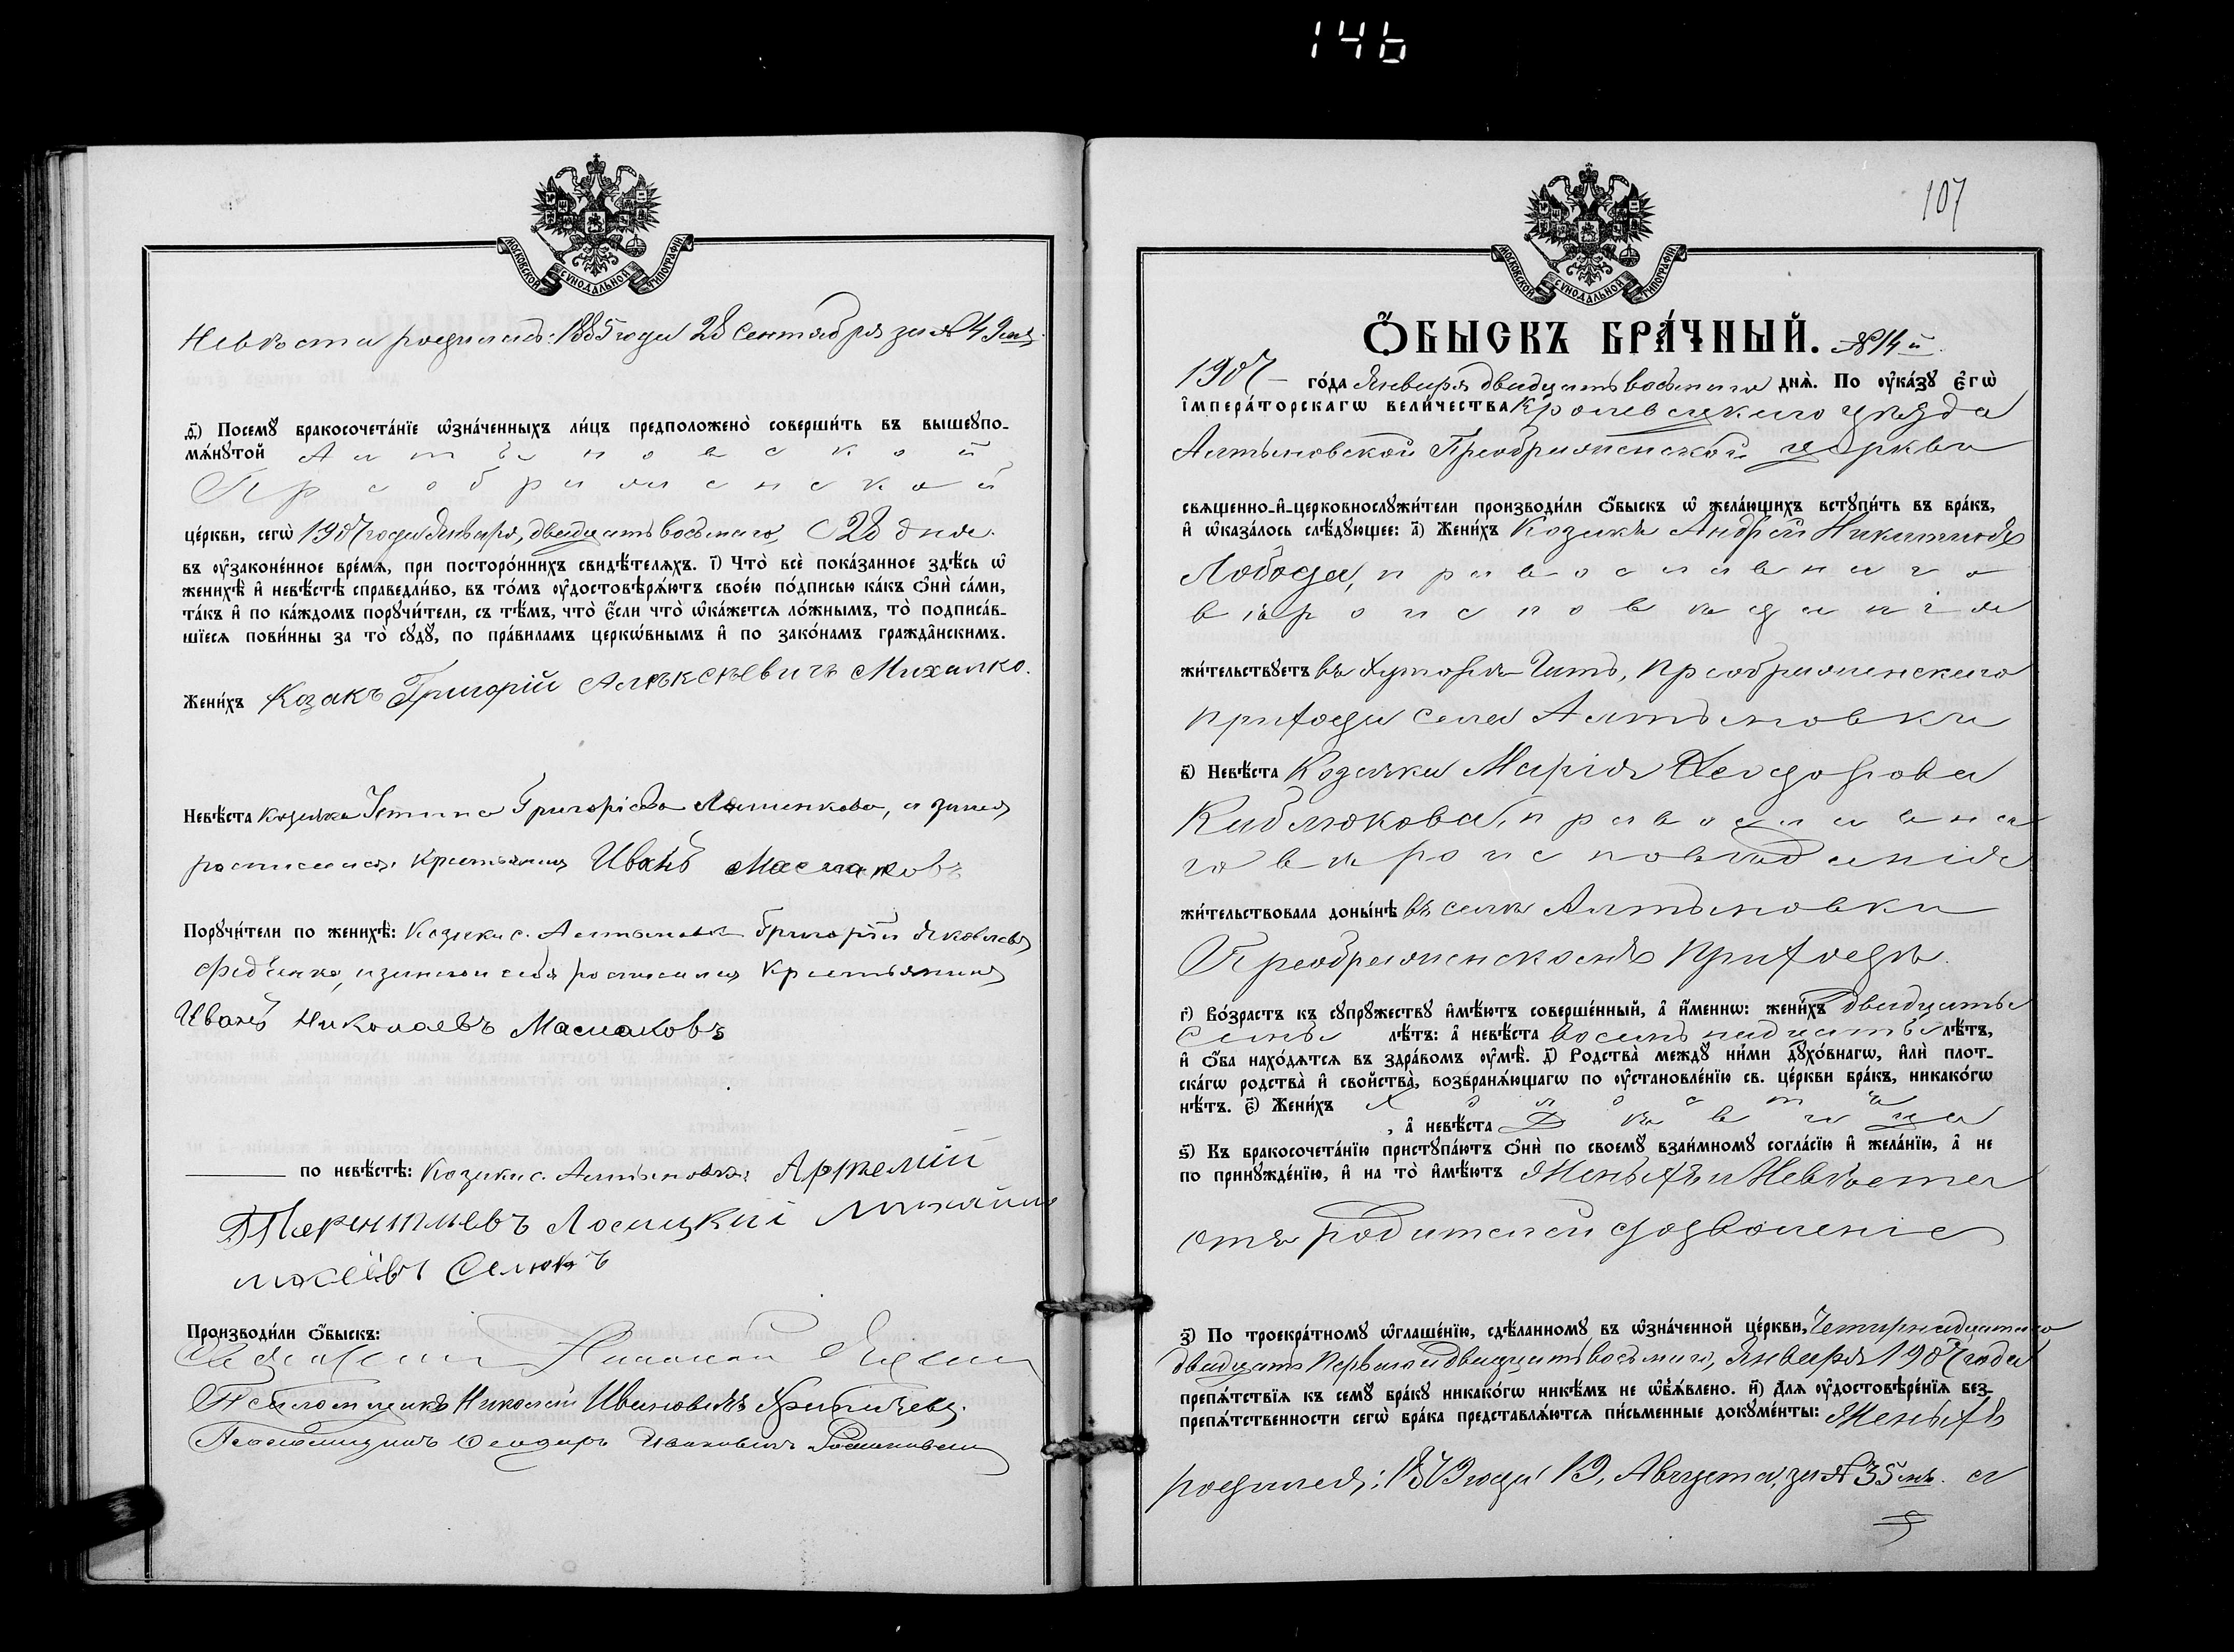 146
МОСКОВСКОЙ СѴНОДАЛЬНОЙ ТИПОГРАФІИ.
Невѣста родилась: 1885 года 28 Сентября за № 49
д҃) Посемꙋ̀ бракосочета́нїе ѡ҆зна́ченныхъ ли́цъ предположено̀ соверши́ть въ вышеꙋпо-
мѧ́нꙋтой Алтыновской
Преображенской
це́ркви, сегѡ̀ 1907 года Января, двадцать восьмаго, 28 дня
въ ᲂу҆законе́нное вре́мѧ, при посторо́ннихъ свидѣ́телѧхъ. і҃) Что̀ всѐ пока́занное здѣ́сь ѡ҆
женихѣ̀ и҆ невѣ́стѣ справедли́во, въ то́мъ ᲂу҆достовѣрѧ́ютъ свое́ю по́дписью ка́къ ѻ҆нѝ са́ми,
та́къ и҆ по ка́ждомъ порꙋчи́тели, съ тѣ́мъ, что̀ є҆́сли что̀ ѡ҆ка́жется ло́жнымъ, то̀ подписа́в-
шїеся пови́нны за то̀ сꙋдꙋ̀, по пра́виламъ церкѡ́внымъ и҆ по зако́намъ гражда̑нскимъ.
Жени́хъ Козакъ Григорій Алѣксѣевичъ Михалко.
Невѣ́ста Козачка Григоріева а за нея
росписался крестьянинъ Иванъ Маслаковъ
Порꙋчи́тели по женихѣ̀: Козаки с. Алтыновки Григорій Яковлевъ
Федченко, и за него и себя росписался Крестьянинъ
Иванъ Николаевъ Маслаковъ
по невѣ́стѣ: Козаки с. Алтыновки
Терентіевъ Лосицкій
Селюкъ
Производи́ли ѻ҆́быскъ:
Священникъ Николай
Псаломщикъ Николай Ивановичъ
Псаломщикъ Ѳеодоръ Ивановичъ
107
МОСКОВСКОЙ СѴНОДАЛЬНОЙ ТИПОГРАФІИ.
Ѻ҆́БЫСКЪ БРА́ЧНЫЙ. № 14й
1907 – го́да Января двадцать восьмаго днѧ̀. По ᲂу҆ка́зꙋ є҆гѡ̀
і҆мпера́торскагѡ вели́чества Кролевецкаго уѣзда
Алтыновской Преображенской церкви
свѧще́нно-и҆-церковнослꙋжи́тели производи́ли ѻ҆́быскъ ѡ҆ жела́ющихъ встꙋпи́ть въ бра́къ,
и҆ ѡ҆каза́лось слѣ́дꙋющее: а҃) Жени́хъ Козакъ Андрей Никитинъ
Лобода, православнаго
вѣроисповѣданія
жи́тельствꙋетъ въ Хуторѣ Гать, Преображенскаго
прихода села Алтыновки
в҃) Невѣ́ста Козачка Марія Ѳеодорова
Каблюкова, православна
го вѣроисповѣданія
жи́тельствовала доны́нѣ въ селѣ Алтыновки
Преображенскомъ приходѣ.
г҃) Во́зрастъ къ сꙋпрꙋ́жествꙋ и҆мѣ́ютъ соверше́нный, а҆ и҆́меннѡ: жени́хъ двадцать
семь лѣ́тъ: а҆ невѣ́ста восемнадцать лѣ́тъ,
и҆ ѻ҆́ба нахо́дѧтся въ здра́вомъ ᲂу҆мѣ̀. д҃) Родства̀ междꙋ̀ ни́ми дꙋхо́внагѡ, и҆лѝ плот-
ска́гѡ родства̀ и҆ свойства̀, возбранѧ́ющагѡ по ᲂу҆становле́нїю св. це́ркви бра́къ, никако́гѡ
нѣ́тъ. є҃) Жени́хъ Холостъ
, а҆ невѣ́ста Дѣвица
ѕ҃) Къ бракосочета́нїю пристꙋпа́ютъ ѻ҆нѝ по своемꙋ̀ взаи́мномꙋ согла́сїю и҆ жела́нїю, а҆ не
по принꙋжде́нїю, и҆ на то̀ и҆мѣ́ютъ Женыхъ и Невѣста
отъ родителей дозволеніе
з҃) По троекра́тномꙋ ѡ҆глаше́нїю, сдѣ́ланномꙋ въ ѡ҆зна́ченной це́ркви, Четырнадцатаго
двадцать перваго и двадцать восьмаго, Января 1907 года
препѧ́тствїѧ къ семꙋ̀ бра́кꙋ никако́гѡ никѣ́мъ не ѡ҆б̾ѧ́влено. и҃) Длѧ ᲂу҆достовѣре́нїѧ без-
препѧ́тственности сегѡ̀ бра́ка представлѧ́ются пи́сьменные докꙋме́нты: Женыхъ
родился: 1879 года 19, Августа, за № 35 мъ. а